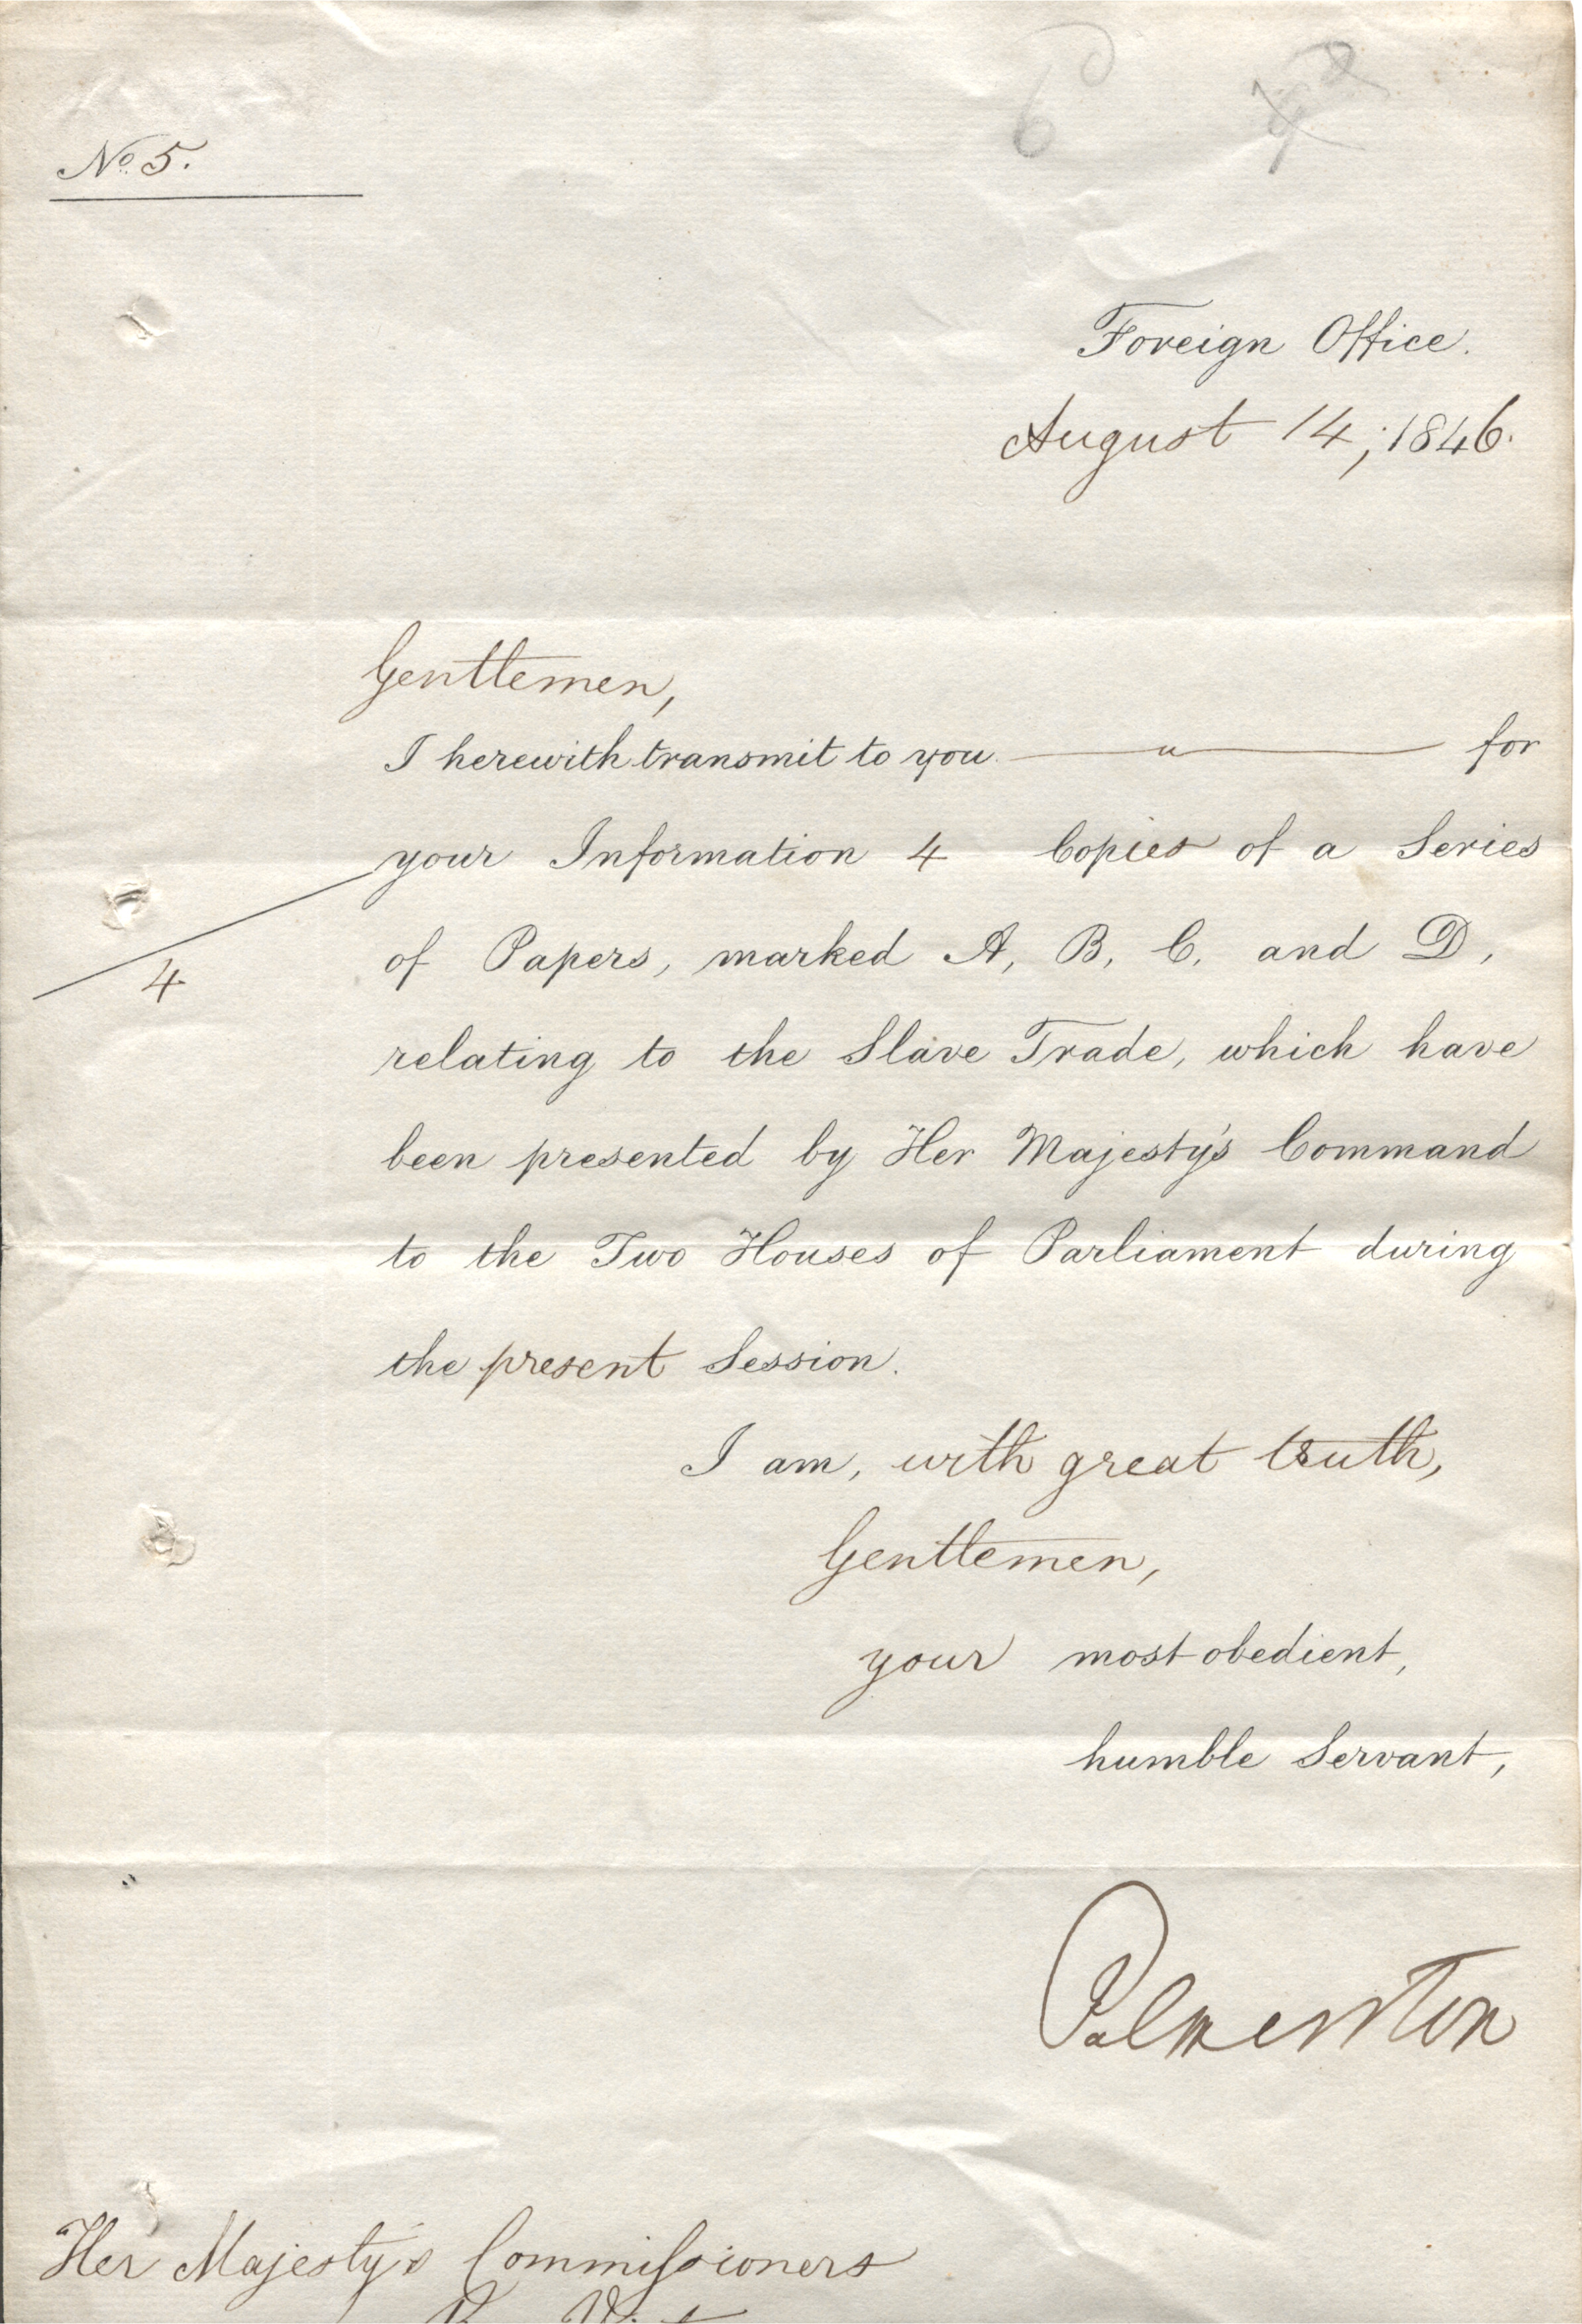 6
No. 5.
Foreign Office.
August 14, 1846.
Gentlemen,
I herewith transmit to you — " — for
your Information 4 Copies of a Series
4
of Papers, marked A, B, C, and D,
relating to the Slave Trade, which have
been presented by Her Majesty's Command
to the Two Houses of Parliament during
the present Session.
I am, with great truth,
Gentlemen,
your most obedient,
humble Servant,
Palmerston
Her Majesty's Commissioners